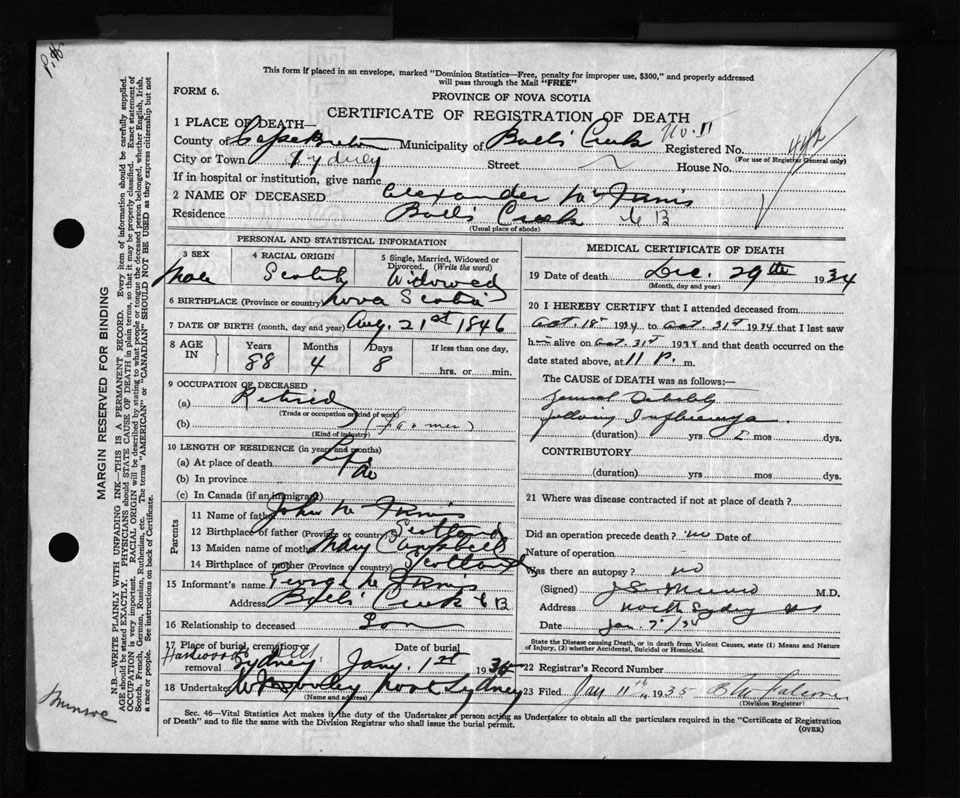 This form if placed in an envelope, marked "Dominion Statistics—Free, penalty for improper use, $300," and properly addressed
will pass through the Mail "FREE"
FORM 6.
PROVINCE OF NOVA SCOTIA
CERTIFICATE OF REGISTRATION OF DEATH
1 PLACE OF DEATH— No. 11
County of Cape Breton Municipality of Balls Creek Registered No.
(For use of Registrar General only)
City or Town Sydney Street House No.
If in hospital or institution, give name
2 NAME OF DECEASED Alexander
Residence Balls Creek C B
(Usual place of abode)
PERSONAL AND STATISTICAL INFORMATION
3 SEX 4 RACIAL ORIGIN 5 Single, Married, Widowed or Divorced. (Write the word)
Male Scotch Widowed
6 BIRTHPLACE (Province or country) Nova Scotia
7 DATE OF BIRTH (month, day and year) Aug. 21st 1846
8 AGE IN Years Months Days If less than one day,
88 4 8 hrs. or min.
9 OCCUPATION OF DECEASED
(a) Retired
(Trade or occupation or kind of work)
(b) (Farmer)
(Kind of industry)
10 LENGTH OF RESIDENCE (in years and months)
(a) At place of death Life
(b) In province
(c) In Canada (if an immigrant)
Parents
11 Name of father John
12 Birthplace of father (Province or country) Scotland
13 Maiden name of mother Mary Campbell
14 Birthplace of mother (Province or country) Scotland
15 Informant's name George
Address Balls Creek C B
16 Relationship to deceased Son
17 Place of burial, cremation or removal Date of burial
Sydney Jany. 1st 1935
18 Undertaker Sydney
(Name and address)
MEDICAL CERTIFICATE OF DEATH
19 Date of death Dec. 29th 1934
(Month, day and year)
20 I HEREBY CERTIFY that I attended deceased from
Oct. 18th 1934 to Oct. 31st 1934 that I last saw
h alive on Oct. 31st 1934 and that death occurred on the
date stated above, at 11 P. m.
The CAUSE OF DEATH was as follows:—
General Debility
following Influenza
(duration) yrs 2 mos dys.
CONTRIBUTORY
(duration) yrs. mos. dys.
21 Where was disease contracted if not at place of death?
Did an operation precede death? no Date of
Nature of operation
Was there an autopsy? no
(Signed) Munro M.D.
Address North Sydney NS
Date Jan
State the Disease causing Death, or in death from Violent Causes, state (1) Means and Nature of
Injury, (2) whether Accidental, Suicidal or Homicidal.
22 Registrar's Record Number
23 Filed Jay 11th 1935
(Division Registrar)
Sec. 46—Vital Statistics Act makes it the duty of the Undertaker or person acting as Undertaker to obtain all the particulars required in the "Certificate of Registration
of Death" and to file the same with the Division Registrar who shall issue the burial permit.
(OVER)
MARGIN RESERVED FOR BINDING
N.B.—WRITE PLAINLY WITH UNFADING INK—THIS IS A PERMANENT RECORD. Every item of information should be carefully supplied.
AGE should be stated EXACTLY. PHYSICIANS should STATE CAUSE OF DEATH in plain terms, so that it may be properly classified. Exact statement of
OCCUPATION is very important. RACIAL ORIGIN will be described by stating to what people or tongue the deceased person belonged, whether English, Irish,
Scotch, French, German, Russian, Ruthenian, etc. The terms "AMERICAN" or "CANADIAN" SHOULD NOT BE USED as they express citizenship but not
a race or people. See instructions on back of Certificate.
Munroe